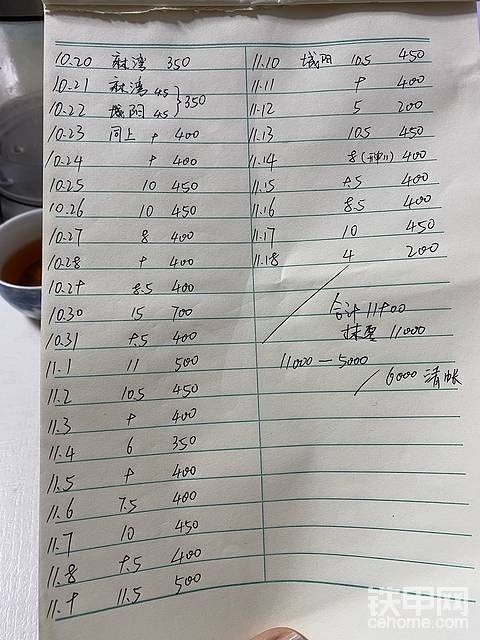 10.20 350
10.21 4.5
10.22 城阳 4.5 }350
10.23 同上 9 400
10.24 9 400
10.25 10 450
10.26 10 450
10.27 8 400
10.28 9 400
10.29 8.5 400
10.30 15 700
10.31 9.5 400
11.1 11 500
11.2 10.5 450
11.3 9 400
11.4 6 350
11.5 9 400
11.6 7.5 400
11.7 10 450
11.8 9.5 400
11.9 11.5 500
11.10 城阳 10.5 450
11.11 9 400
11.12 5 200
11.13 10.5 450
11.14 8 400
11.15 9.5 400
11.16 8.5 400
11.17 10 450
11.18 4 200
合计 11900
抹零 11000
11000 — 5000
6000 清帐
铁甲网
cehome.com